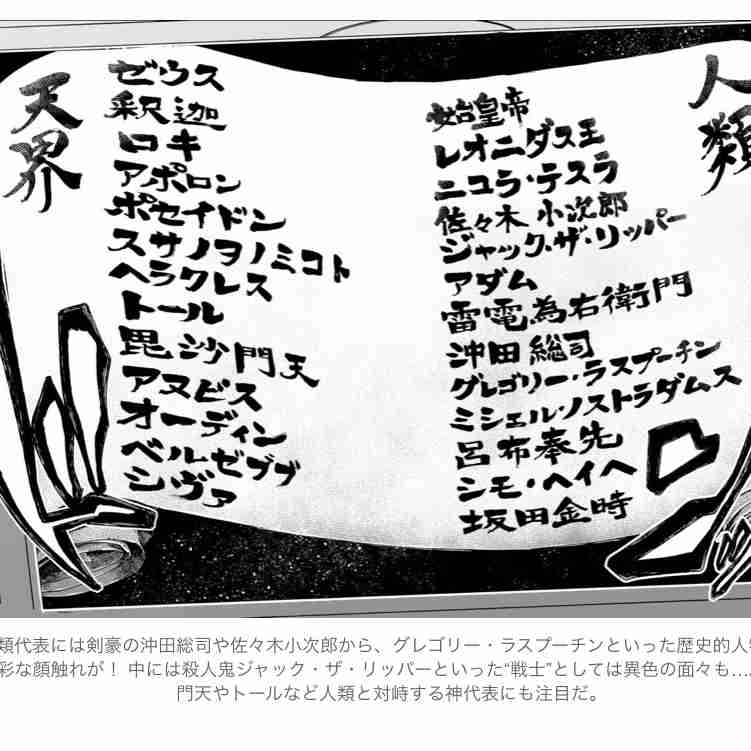 天界
ゼウス
釈迦
ロキ
アポロン
ポセイドン
スサノヲノミコト
ヘラクレス
トール
毘沙門天
アヌビス
オーディン
ベルゼブブ
シヴァ
人類
始皇帝
レオニダス王
ニコラ・テスラ
佐々木小次郎
ジャック・ザ・リッパー
アダム
雷電為右衛門
沖田総司
グレゴリー・ラスプーチン
ミシェル・ノストラダムス
呂布奉先
シモ・ヘイヘ
坂田金時
類代表には剣豪の沖田総司や佐々木小次郎から、グレゴリー・ラスプーチンといった歴史的人物
彩な顔触れが！ 中には殺人鬼ジャック・ザ・リッパーといった“戦士”としては異色の面々も…
門天やトールなど人類と対峙する神代表にも注目だ。